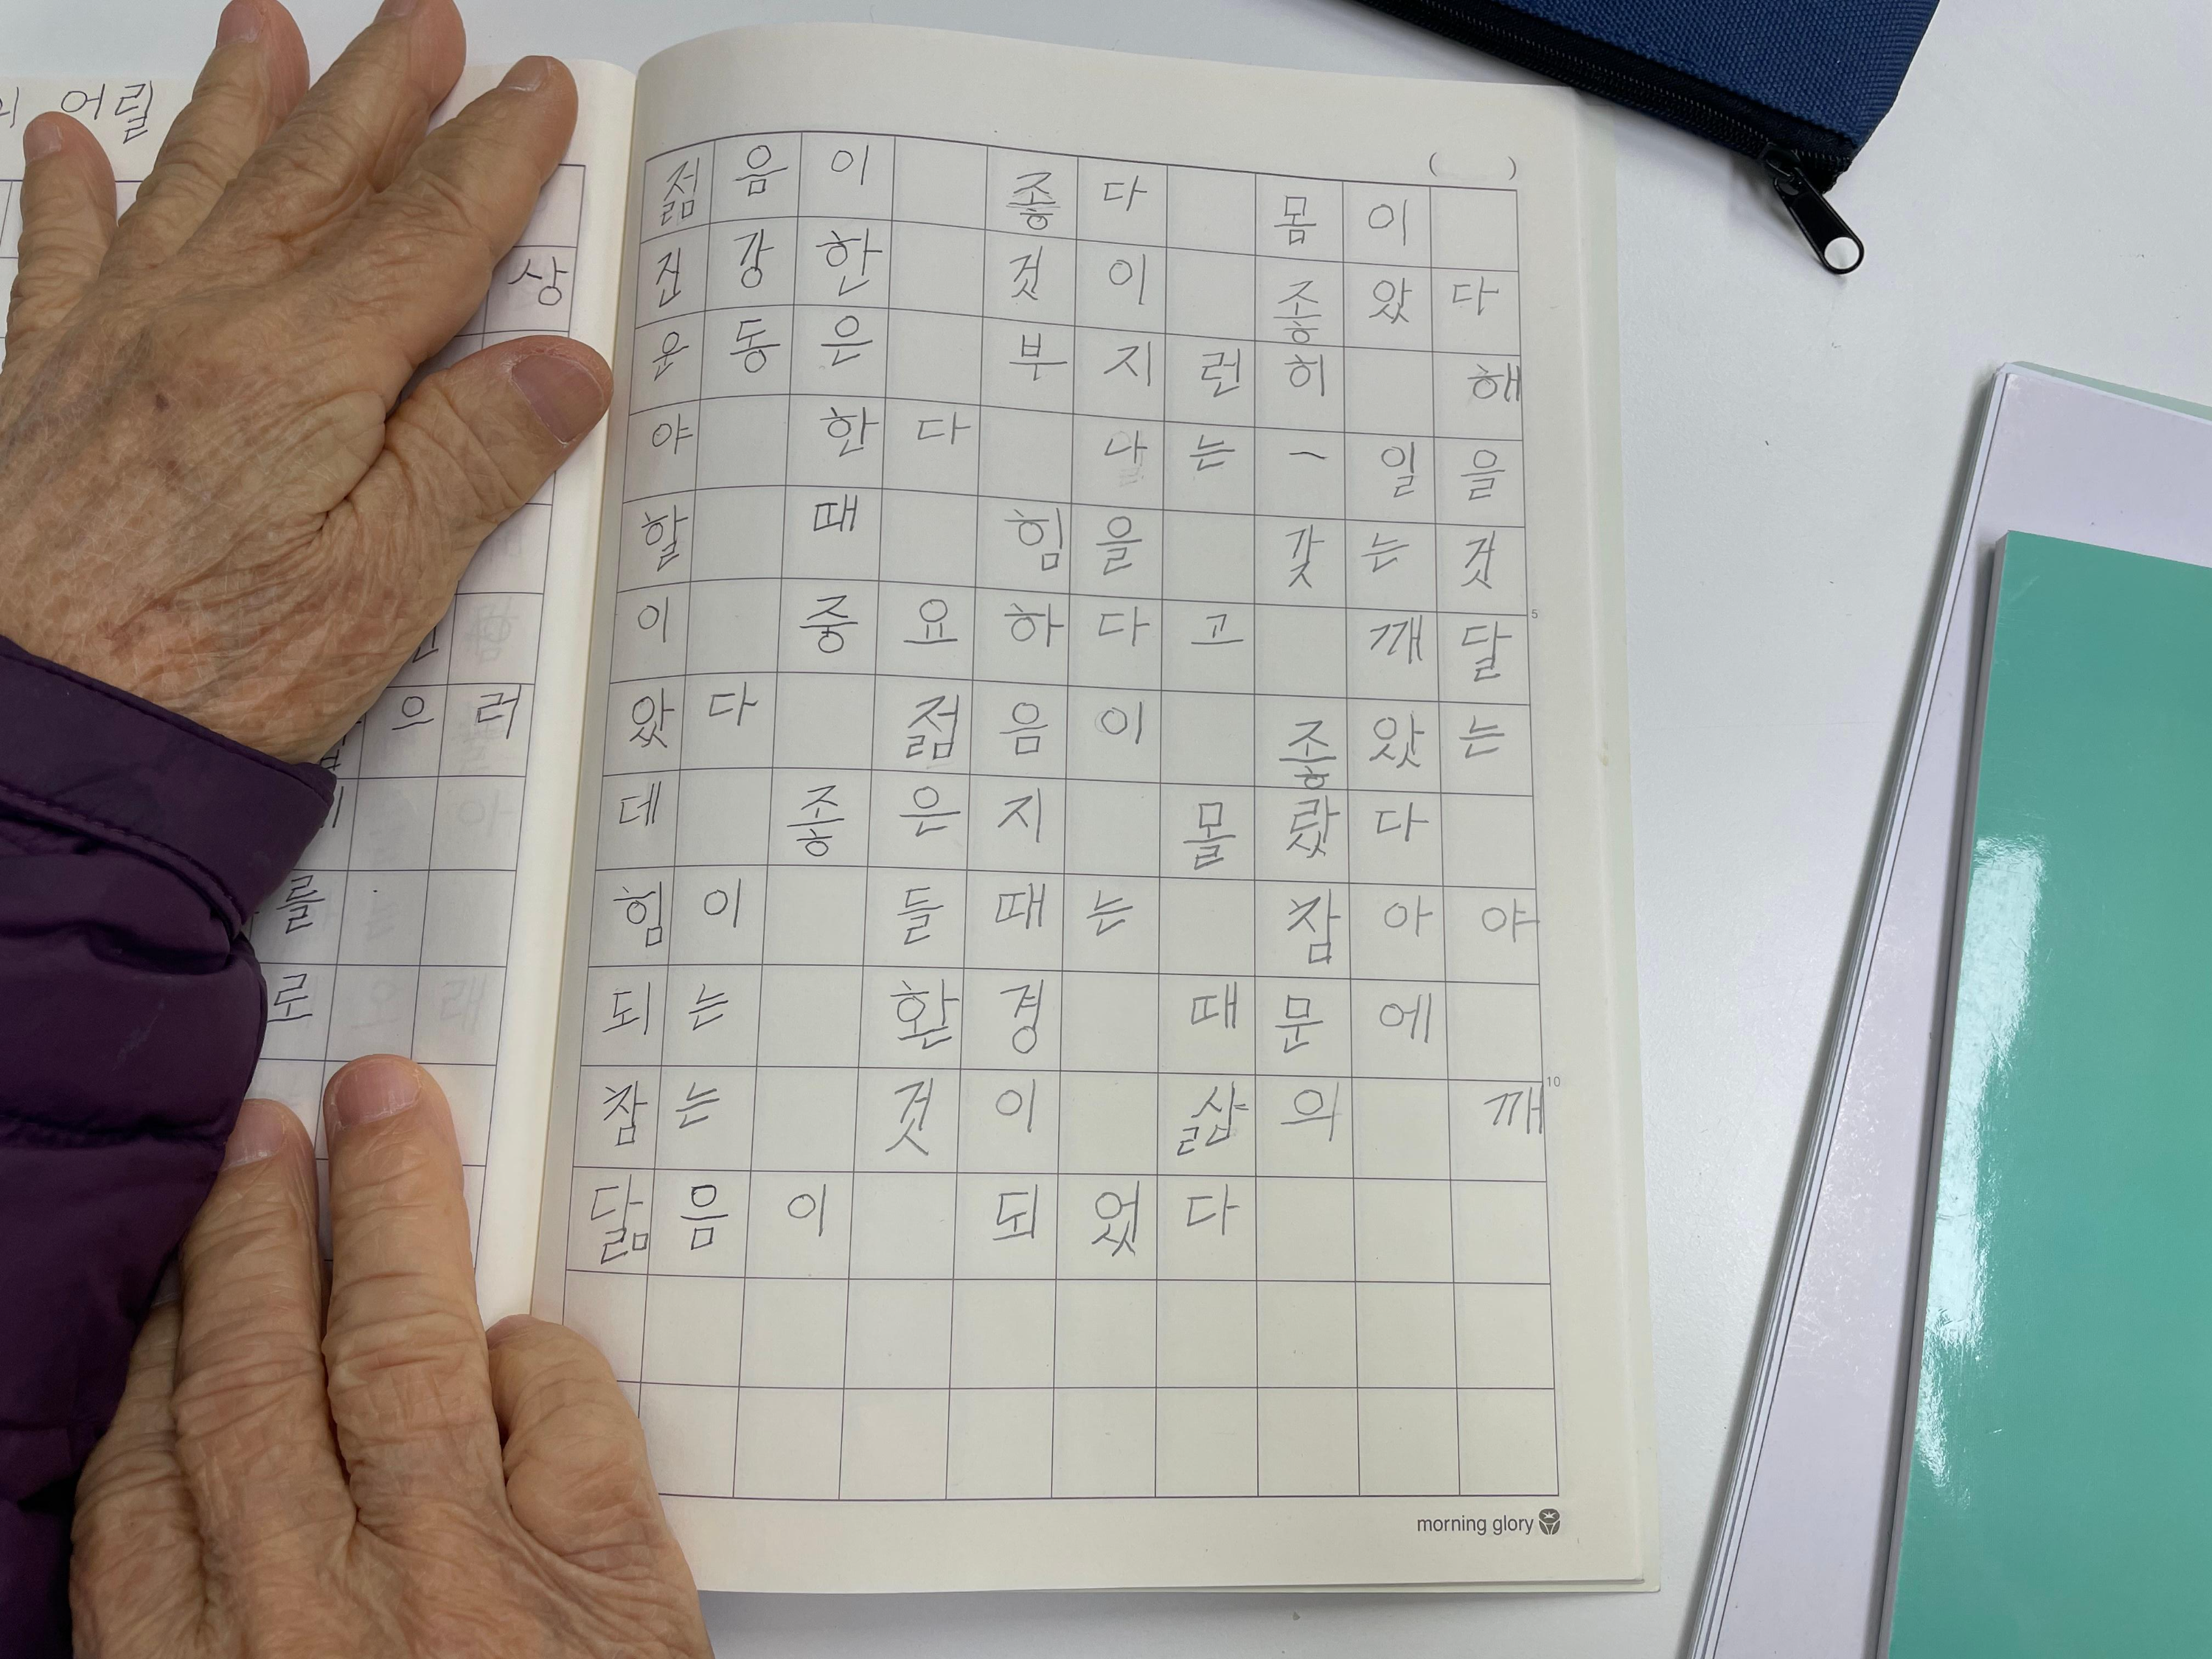 어릴
상
으러
를
로
젊음이 좋다 몸이
건강한 것이 좋았다
운동은 부지런히 해
야 한다 나는 일을
할 때 힘을 갖는 것
이 중요하다고 깨달
았다 젊음이 좋았는
데 좋은지 몰랐다
힘이 들때는 참아야
되는 환경 때문에
참는 것이 삶의 깨
닮음이 되었다
5
10
morning glory